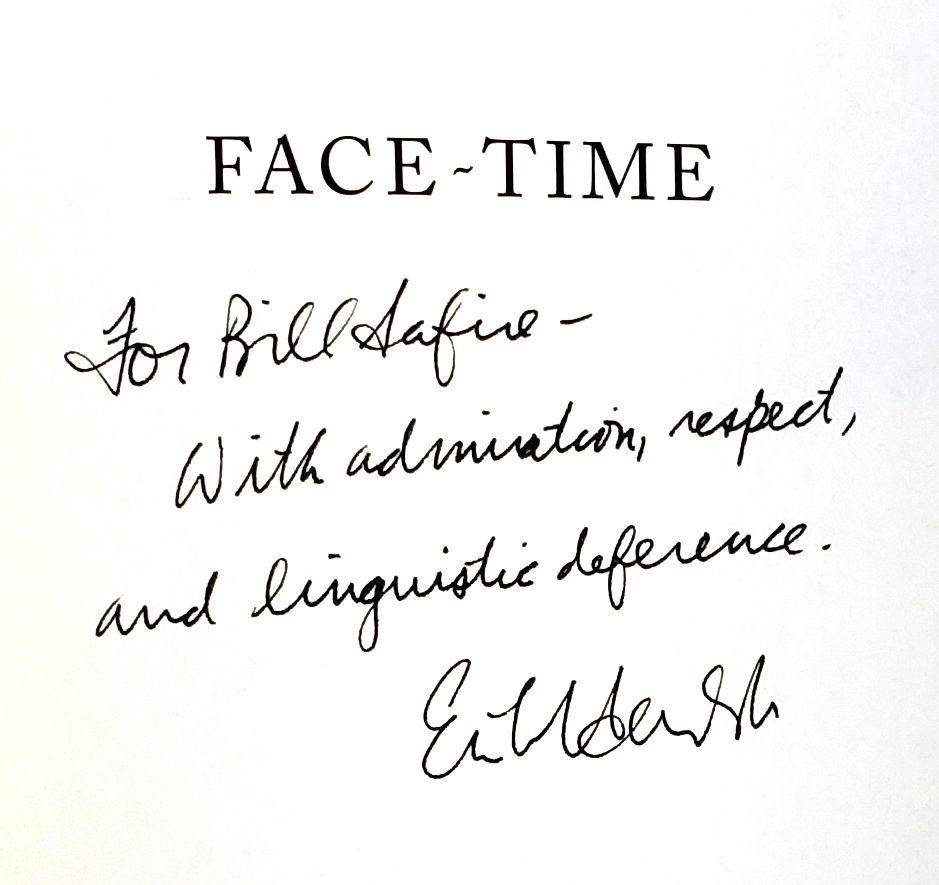 FACE~TIME
For Bill Safire –
With admiration, respect,
and linguistic deference.
Erik